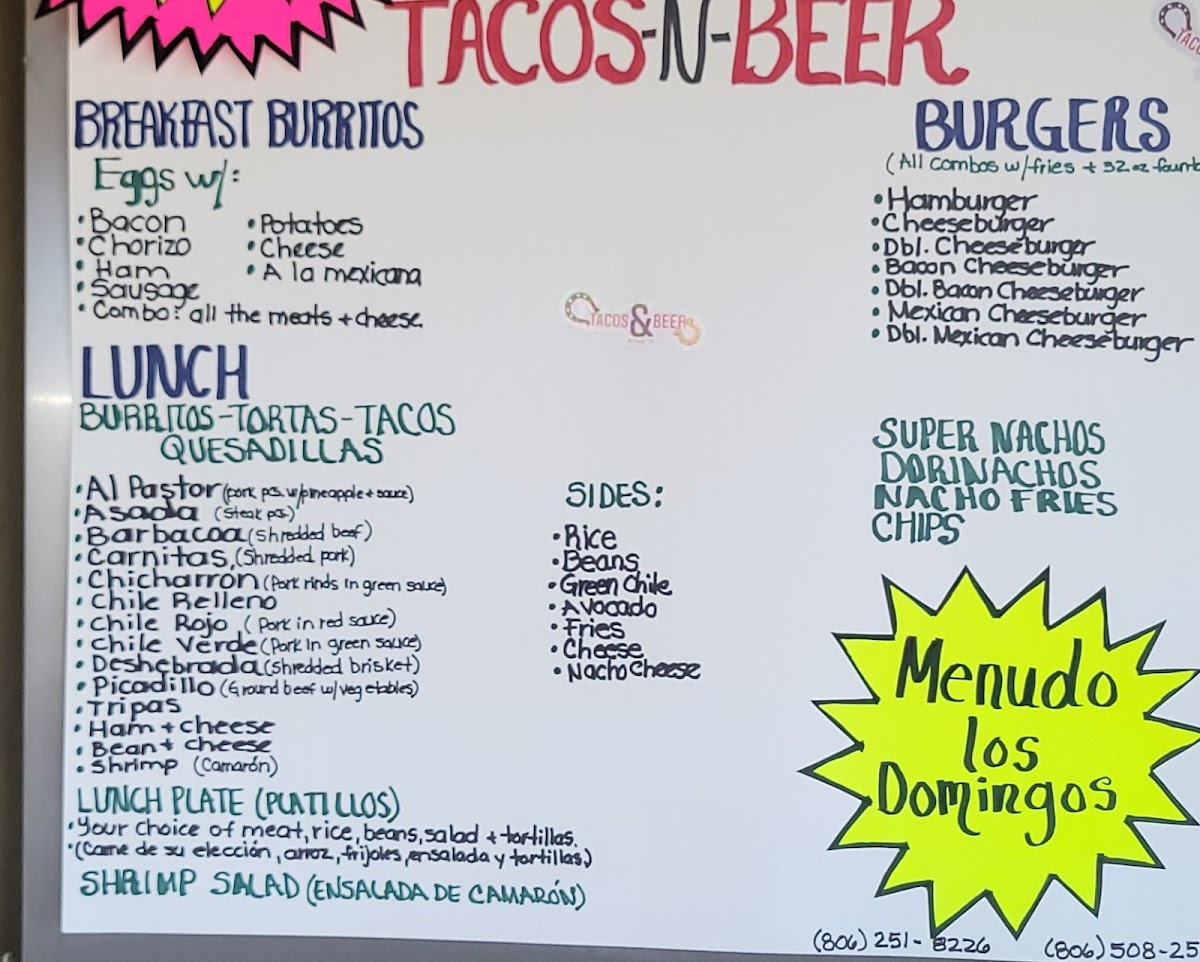 TACOS-N-BEER
BREAKFAST BURRITOS
Eggs w/:
• Bacon
• Chorizo
• Ham
• Sausage
• Combo: all the meats + cheese
• Potatoes
• Cheese
• A la mexicana
LUNCH
BURRITOS-TORTAS-TACOS
QUESADILLAS
• Al Pastor (pork pcs. w/pineapple + sauce)
• Asada (Steak pcs)
• Barbacoa (shredded beef)
• Carnitas, (Shredded pork)
• Chicharron (Pork rinds in green sauce)
• Chile Relleno
• Chile Rojo (Pork in red sauce)
• Chile Verde (Pork in green sauce)
• Deshebrada (shredded brisket)
• Picadillo (Ground beef w/ vegetables)
• Tripas
• Ham + cheese
• Bean + cheese
• Shrimp (Camarón)
LUNCH PLATE (PLATILLOS)
• Your choice of meat, rice, beans, salad + tortillas.
• (Carne de su elección, arroz, frijoles, ensalada y tortillas)
SHRIMP SALAD (ENSALADA DE CAMARÓN)
TACOS & BEER
SIDES:
• Rice
• Beans
• Green Chile
• Avocado
• Fries
• Cheese
• Nacho Cheese
TACO
BURGERS
(All combos w/fries + 32 oz fount
• Hamburger
• Cheeseburger
• Dbl. Cheeseburger
• Bacon Cheeseburger
• Dbl. Bacon Cheeseburger
• Mexican Cheeseburger
• Dbl. Mexican Cheeseburger
SUPER NACHOS
DORINACHOS
NACHO FRIES
CHIPS
Menudo
los
Domingos
(806) 251-8226 (806) 508-25